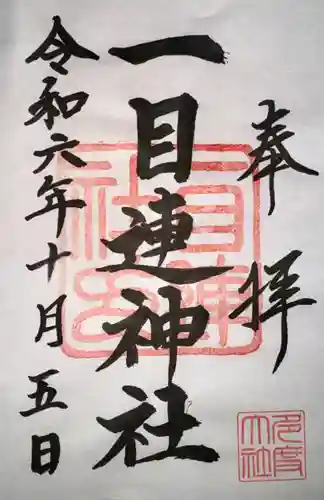 奉拝
一目連神社
令和六年十月五日
一目連社
多度大社